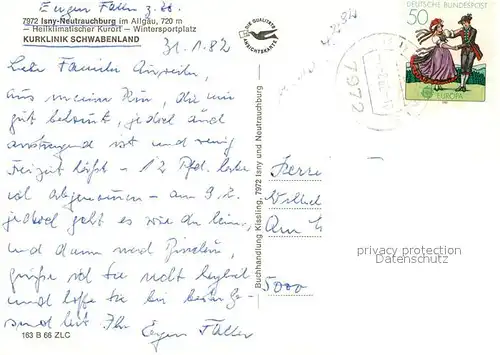 Eugen Faller z. Zt.
7972 Isny-Neutrauchburg im Allgäu, 720 m
– Heilklimatischer Kurort – Wintersportplatz
KURKLINIK SCHWABENLAND
31.1.82
Liebe Familie
aus meiner Kur, die mir
gut bekommt, jedoch auch
anstrengend ist und wenig
Freizeit läßt – 12 Pfd. habe
ich abgenommen – am 9.2.
jedoch geht es wieder heim,
und dann nach
grüße ich Sie recht herzlich
und hoffe Sie bei bester Ge-
sundheit Ihr Eugen Faller
163 B 66 ZLC
DIE QUALITÄTS
ANSICHTSKARTE
Buchhandlung Kissling, 7972 Isny und Neutrauchburg
7972
DEUTSCHE BUNDESPOST
50
EUROPA
Herrn
Am
5000
privacy protection
Datenschutz